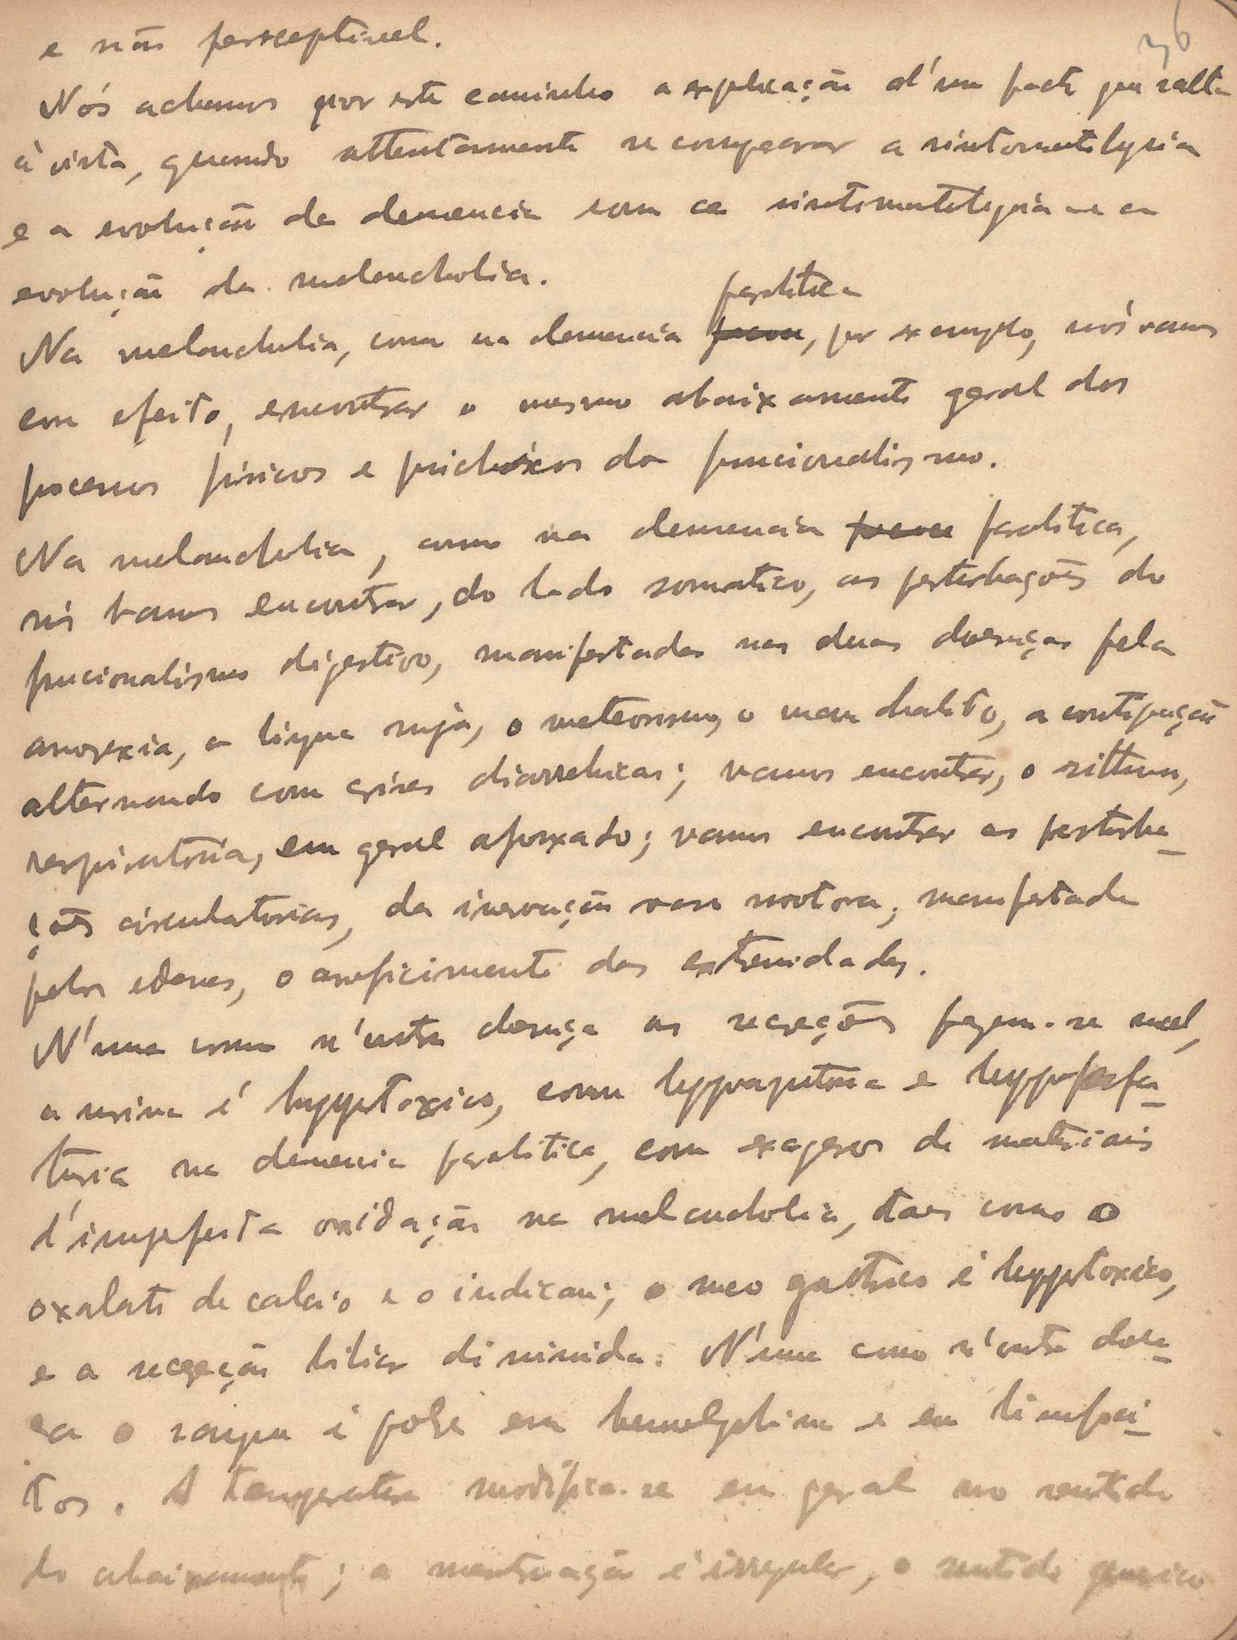 36
e não perceptivel.
Nós achamos por este caminho a explicação d'um facto que salta
á vista, quando attentamente se comparar a sintomatologia
e a evolução da demencia com a sintomatologia e a
evolução da melancholia.
paralitica
Na melancholia, como na demencia, por exemplo, nós vamos
com efeito, encontrar o mesmo abaixamento geral dos
processos fisicos e psichicos do funcionalismo.
Na melancholia, como na demencia paralitica,
nós vamos encontrar, do lado somatico, as perturbações do
funcionalismo digestivo, manifestadas nas duas doenças pela
anorexia, a lingua suja, o meteorismo, o mau halito, a constipação
alternando com crises diarrheicas; vamos encontrar, o rithmo,
respiratoria, em geral afrouxado; vamos encontrar as perturba-
ções circulatorias, da inervação vaso motora, manifestada
pelos edemas, o arrefecimento das extremidades.
N'uma como n'outra doença as secreções fazem-se mal,
a urina é hypotoxica, com hypoazoturia e hypofosfa-
turia na demencia paralitica, com exageros de materiais
d'imperfeita oxidação na melancholia, taes como o
oxalato de calcio e o indican; o suco gastrico é hypotoxico,
e a secreção biliar diminuida. N'uma como n'outra doen-
ça o sangue é pobre em hemoglobina e em
tos. A temperatura modifica-se em geral no sentido
do abaixamento; a menstruação é irregular, o sentido genesico